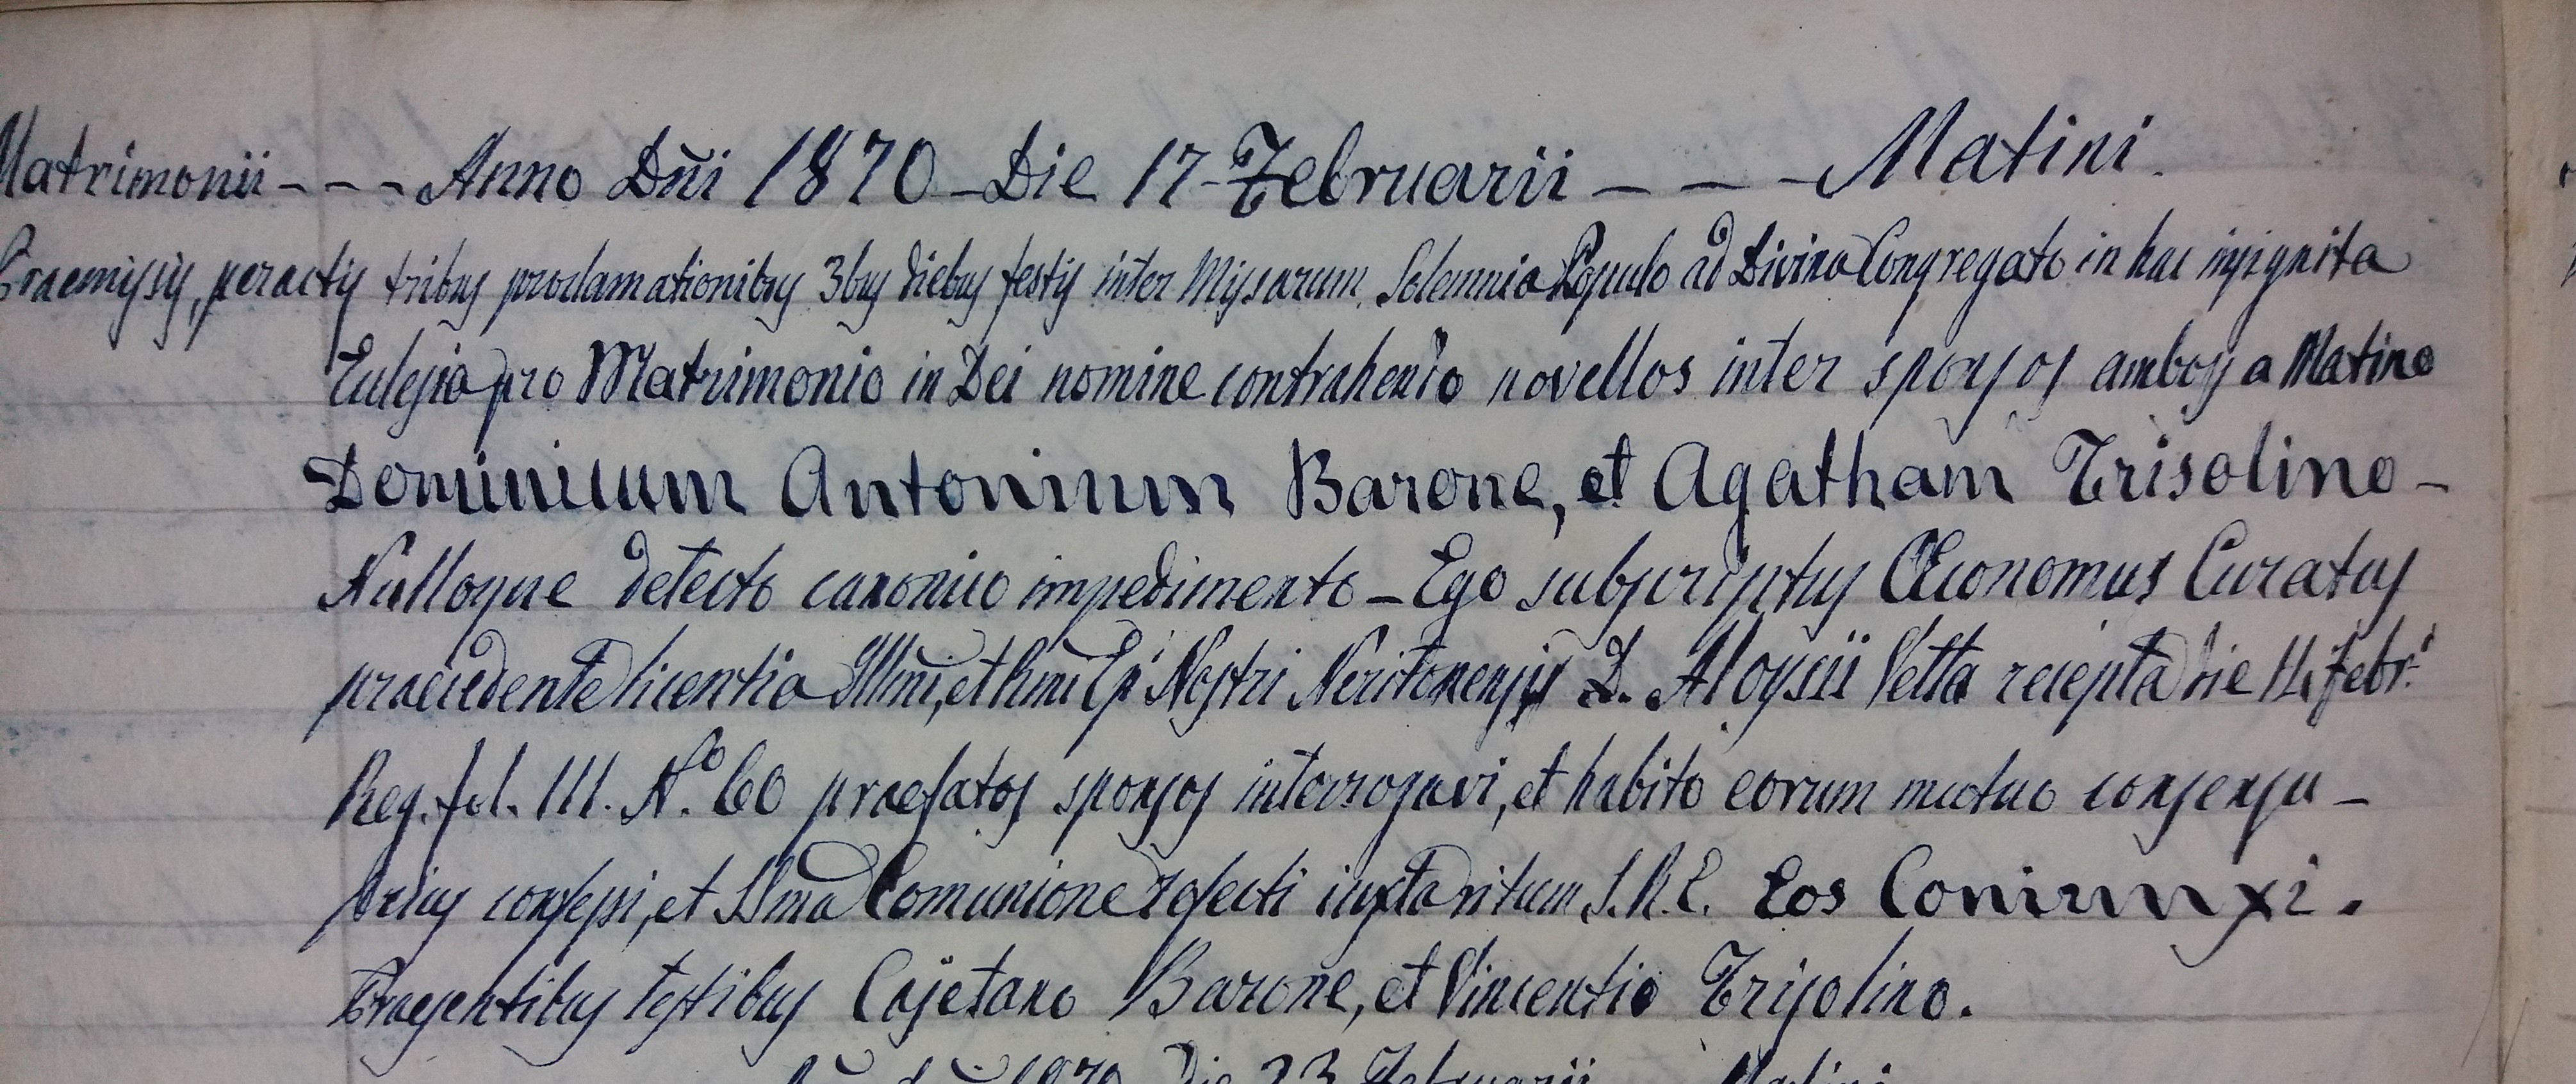 Matrimonii - - - Anno Dñi 1870 - Die 17 - Februarii - - - Matini.
Praemissis, peractis tribus proclamationibus 3bus diebus festis inter Missarum Solemnia Populo ad Divina Congregato in hac insignita
Eclesia pro Matrimonio in Dei nomine contrahendo novellos inter sponsos ambos a Matino
Dominicum Antonium Barone, et Agatham Trisolino -
Nulloque detecto canonico impedimento - Ego subscriptus Œconomus Curatus
praecedente licentia Illmi, et Rmi Epi Nostri Neritonensis D. Aloysii Vetta recepta die 14 Febr.i
Reg. fol. 111. N.o 60 praefatos sponsos interrogavi, et habito eorum mutuo consensu -
prius confessi, et SSma Comunione refecti iuxta ritum S. R. E. Eos Coniunxi.
Praesentibus testibus Cajetano Barone, et Vincentio Trisolino.
1870 Die 23 Februarii Matini